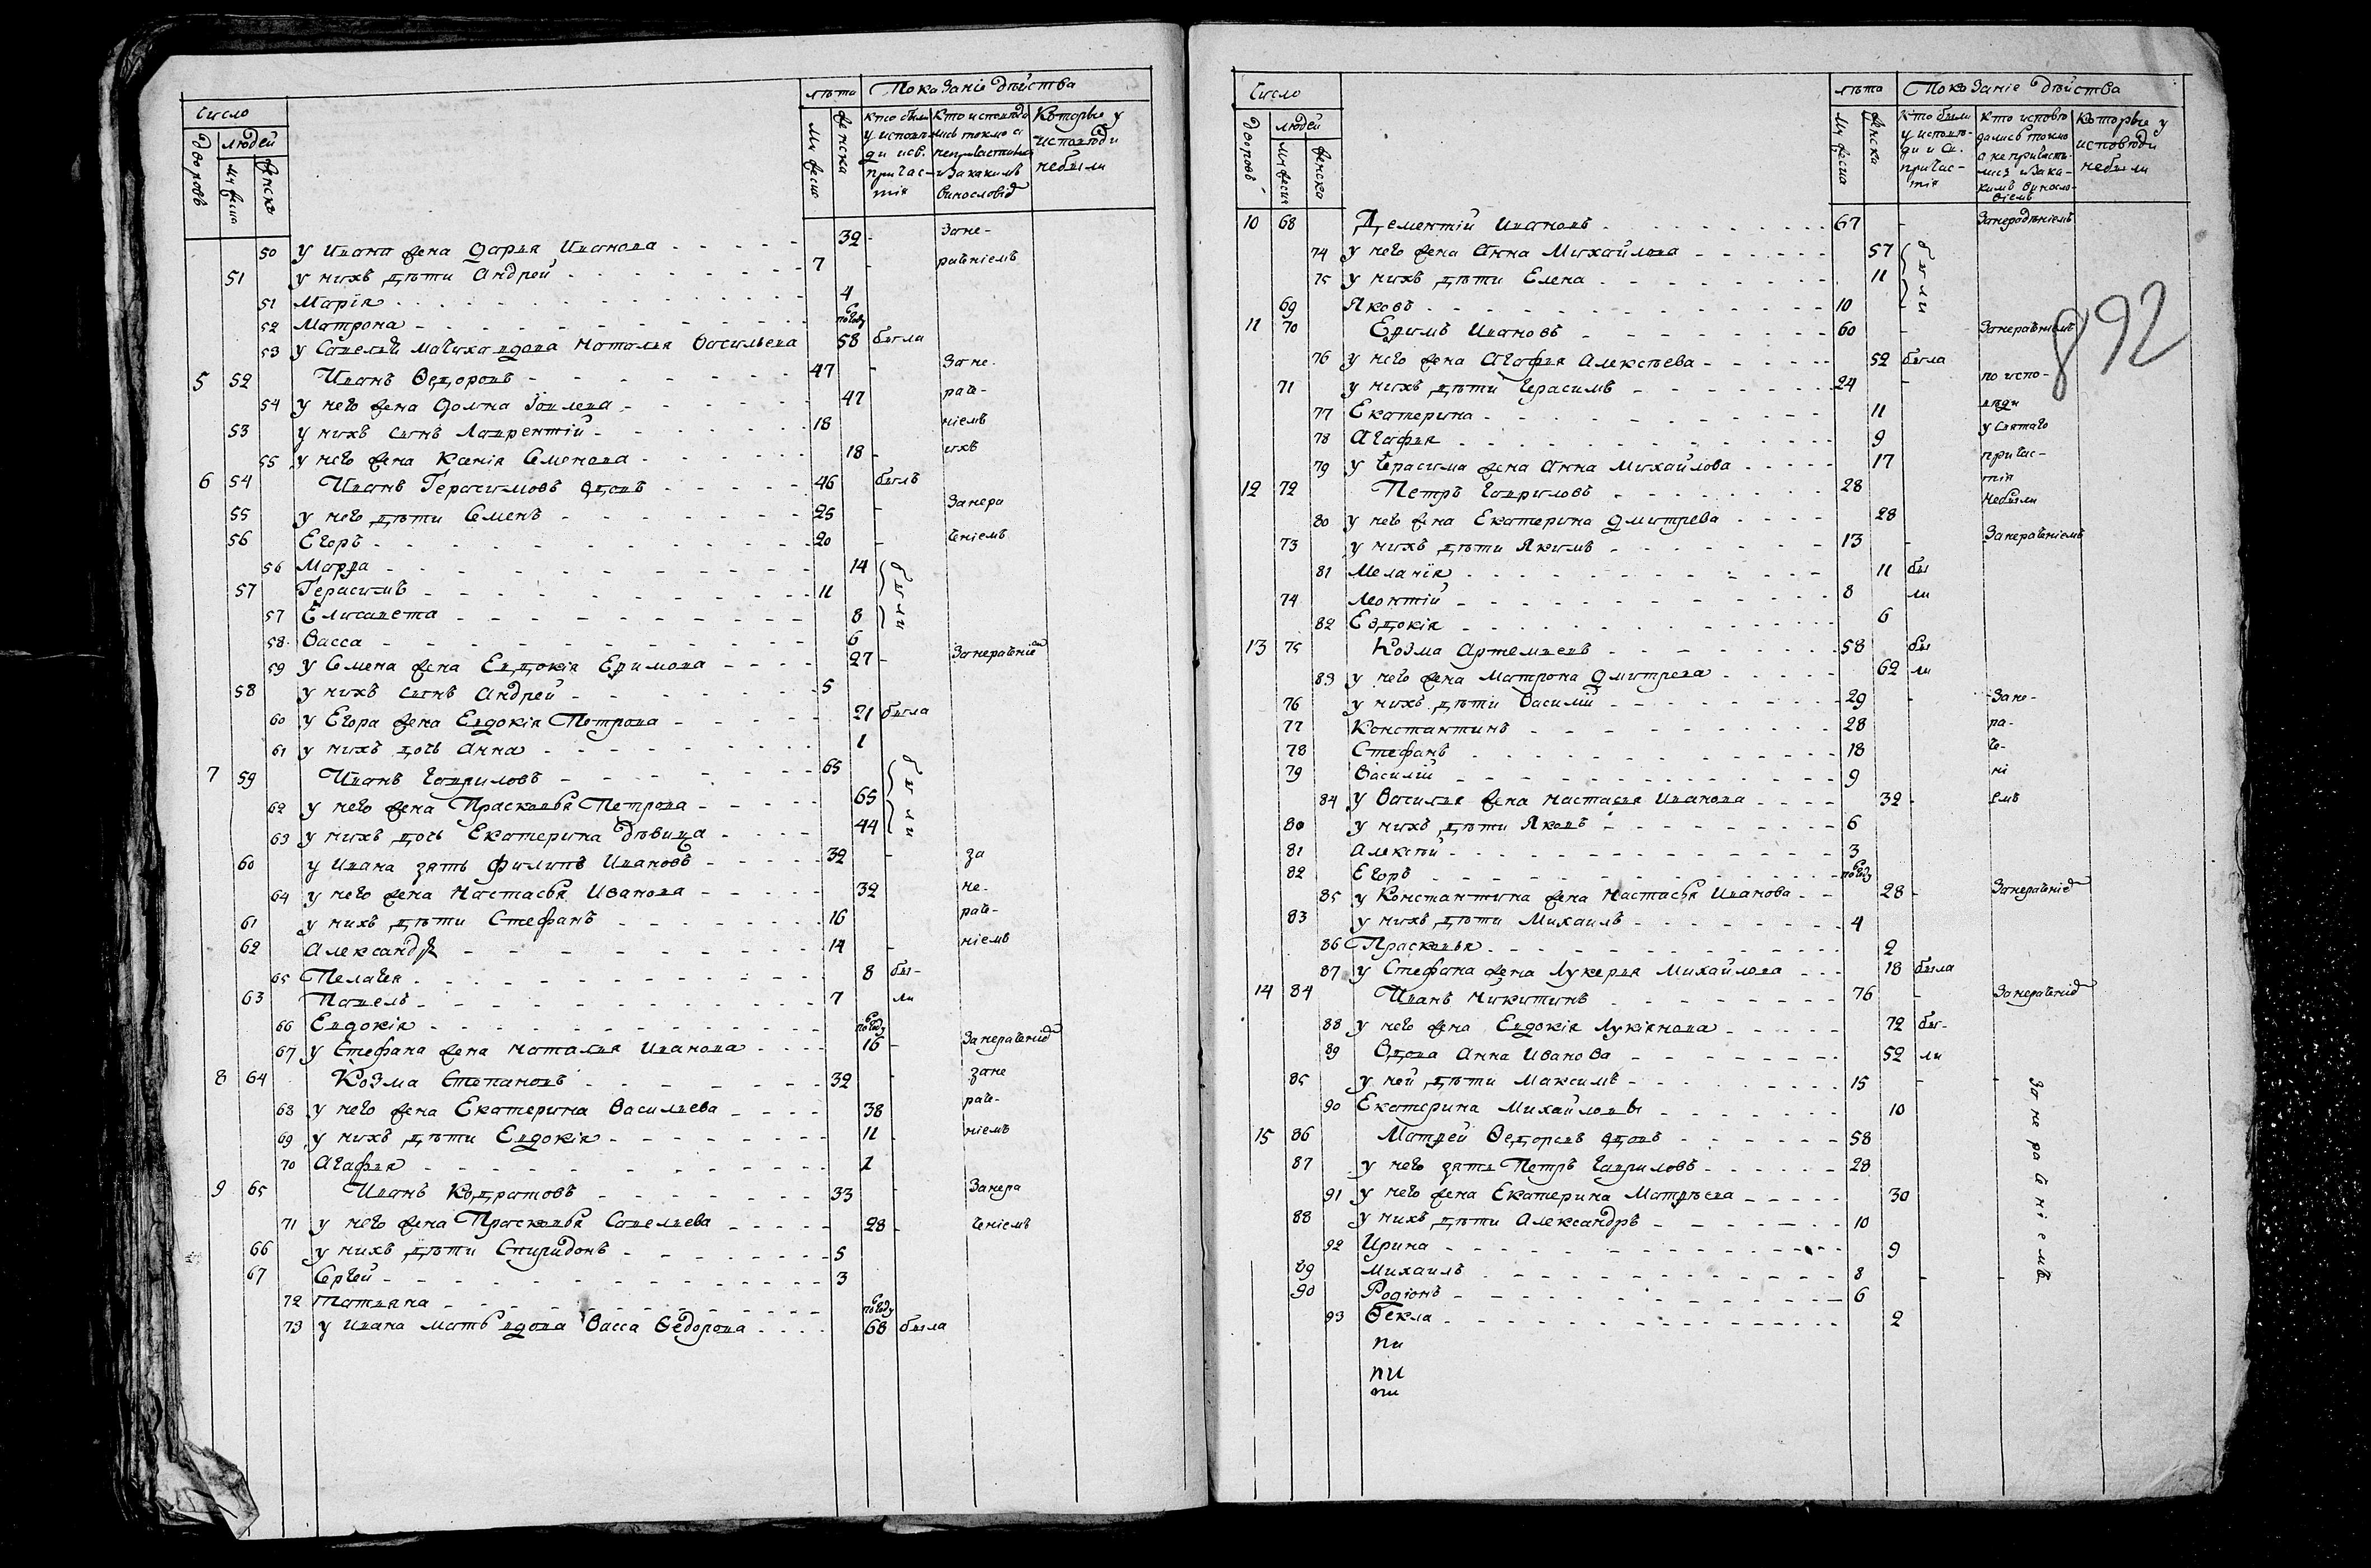 число
лѣта Показаніе дѣйства
дворовъ людей мужеска женска
мужеска женска
кто были у исповѣди и св. причастія
кто исповѣдались токмо а непричастились и за какимъ винословіемъ
Которые у исповѣди небыли
50 у Ивана жена Дарья Иванова 32 - Зане-
51 у нихъ дѣти Андрей 7 - раченіемъ
51 Марія 4
52 Матрона по году
53 у Савелія мачиха вдова Наталья Васильева 58 была
5 52 Иванъ Ѳедоровъ 47 - Зане-
54 у него жена Домна Іовлева 47 раче-
53 у нихъ сынъ Лаврентій 18 ніемъ
55 у него жена Ксенія Семенова 18 - ихъ
6 54 Иванъ Герасимовъ вдовъ 46 былъ
55 у него дѣти Семенъ 25 - Занера
56 Егоръ 20 - ченіемъ
56 Марѳа 14 были
57 Герасимъ 11
57 Елисавета 8
58 Васса 6
59 у Семена жена Евдокія Ефимова 27 - Занераченіем
58 у нихъ сынъ Андрей 5
60 у Егора жена Евдокія Петрова 21 была
61 у нихъ дочь Анна 1
7 59 Иванъ Гавриловъ 65 были
62 у него жена Прасковья Петрова 65
63 у нихъ дочь Екатерина дѣвица 44
60 у Ивана зять Филипъ Ивановъ 32 - за
64 у него жена Настасья Иванова 32 не-
61 у нихъ дѣти Стефанъ 16 раче-
62 Александръ 14 - ніемъ
65 Пелагея 8 бы-
63 Павелъ 7 ли
66 Евдокія по году
67 у Стефана жена Наталья Иванова 16 - Занераченіем
8 64 Козма Степановъ 32 - зане
68 у него жена Екатерина Васильева 38 раче-
69 у нихъ дѣти Евдокія 11 - ніемъ
70 Агафья 2
9 65 Иванъ Кодратовъ 33 - Занера
71 у него жена Прасковья Савельева 28 - ченіемъ
66 у нихъ дѣти Спиридонъ 5
67 Сергей 3
72 Татьяна по году
73 у Ивана мать вдова Васса Ѳедорова 68 была
Число
лѣта Показаніе дѣйства
дворовъ людей мужеска женска
мужеска женска
Кто были у исповѣди и св. причастія
Кто исповѣдались токмо а непричастились и за какимъ винословіемъ
Которые у исповѣди небыли
892
10 68 Дементій Ивановъ 67 - Занерадѣніемъ
74 у него жена Анна Михайлова 57 были
75 у нихъ дѣти Елена 11
69 Яковъ 10
11 70 Ефимъ Ивановъ 60 - Занераченіемъ
76 у него жена Агафья Алексѣева 52 была
71 у нихъ дѣти Герасимъ 24 - по испо-
77 Екатерина 11 вѣди
78 Агафья 9 у святаго
79 у Герасима жена Анна Михайлова 17 причас-
тія
12 72 Петръ Гавриловъ 28 небыли
80 у него жена Екатерина Дмитрева 28
73 у нихъ дѣти Якимъ 13 - Занераченіемъ
81 Меланія 11 бы
74 Леонтій 8 ли
82 Евдокія 6
13 75 Козма Артемьевъ 58 бы
83 у него жена Матрона Дмитрева 62 ли
76 у нихъ дѣти Василій 29 - Зане-
77 Константинъ 28 ра-
78 Стефанъ 18 че-
79 Василій 9 ні
84 у Василья жена Настасья Иванова 32 - емъ
80 у нихъ дѣти Яковъ 6
81 Алексѣй 3
82 Егоръ по году
85 у Константина жена Настасья Иванова 28 - Занераченіем
83 у нихъ дѣти Михаилъ 4
86 Прасковья 2
87 у Стефана жена Лукерья Михайлова 18 была
14 84 Иванъ Никитинъ 76 - Занераченіем
88 у него жена Евдокія Лукіянова 72 бы-
89 Вдова Анна Иванова 52 ли
85 у ней дѣти Максимъ 15 - -
90 Екатерина Михайловы 10
Занераченіемъ
15 86 Матвей Ѳедоровъ вдовъ 58
87 у него зять Петръ Гавриловъ 28
91 у него жена Екатерина Матвѣева 30
88 у нихъ дѣти Александръ 10
92 Ирина 9
89 Михаилъ 8 - -
90 Родіонъ 6
93 Ѳекла 2